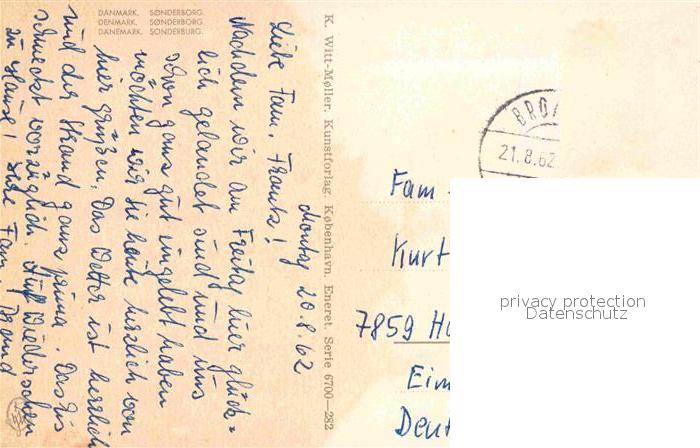 DANMARK. SØNDERBORG.
DENMARK. SØNDERBORG.
DÄNEMARK. SONDERBURG.
Montag 20.8.62
Liebe Fam. Frantz!
Nachdem wir am Freitag hier glück=
lich gelandet sind und uns
schon ganz gut eingelebt haben
möchten wir Sie heute herzlich von
hier grüßen. Das Wetter ist herrlich
und der Strand ganz prima. Das Eis
schmeckt vorzüglich. Auf Wiedersehen
zu Hause! Ihre Fam.
K. Witt-Møller. Kunstforlag. København. Eneret. Serie 6700—282
21.8.62
Fam
Kurt
7859 Ha
Eim
Deut
privacy protection
Datenschutz